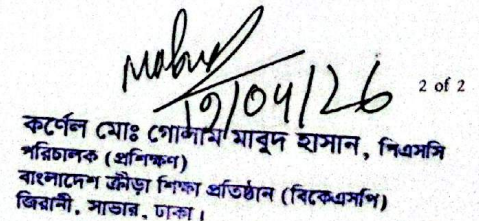 19/04/26
2 of 2
কর্ণেল মোঃ গোলাম মাবুদ হাসান, পিএসসি
পরিচালক (প্রশিক্ষণ)
বাংলাদেশ ক্রীড়া শিক্ষা প্রতিষ্ঠান (বিকেএসপি)
জিরানী, সাভার, ঢাকা।